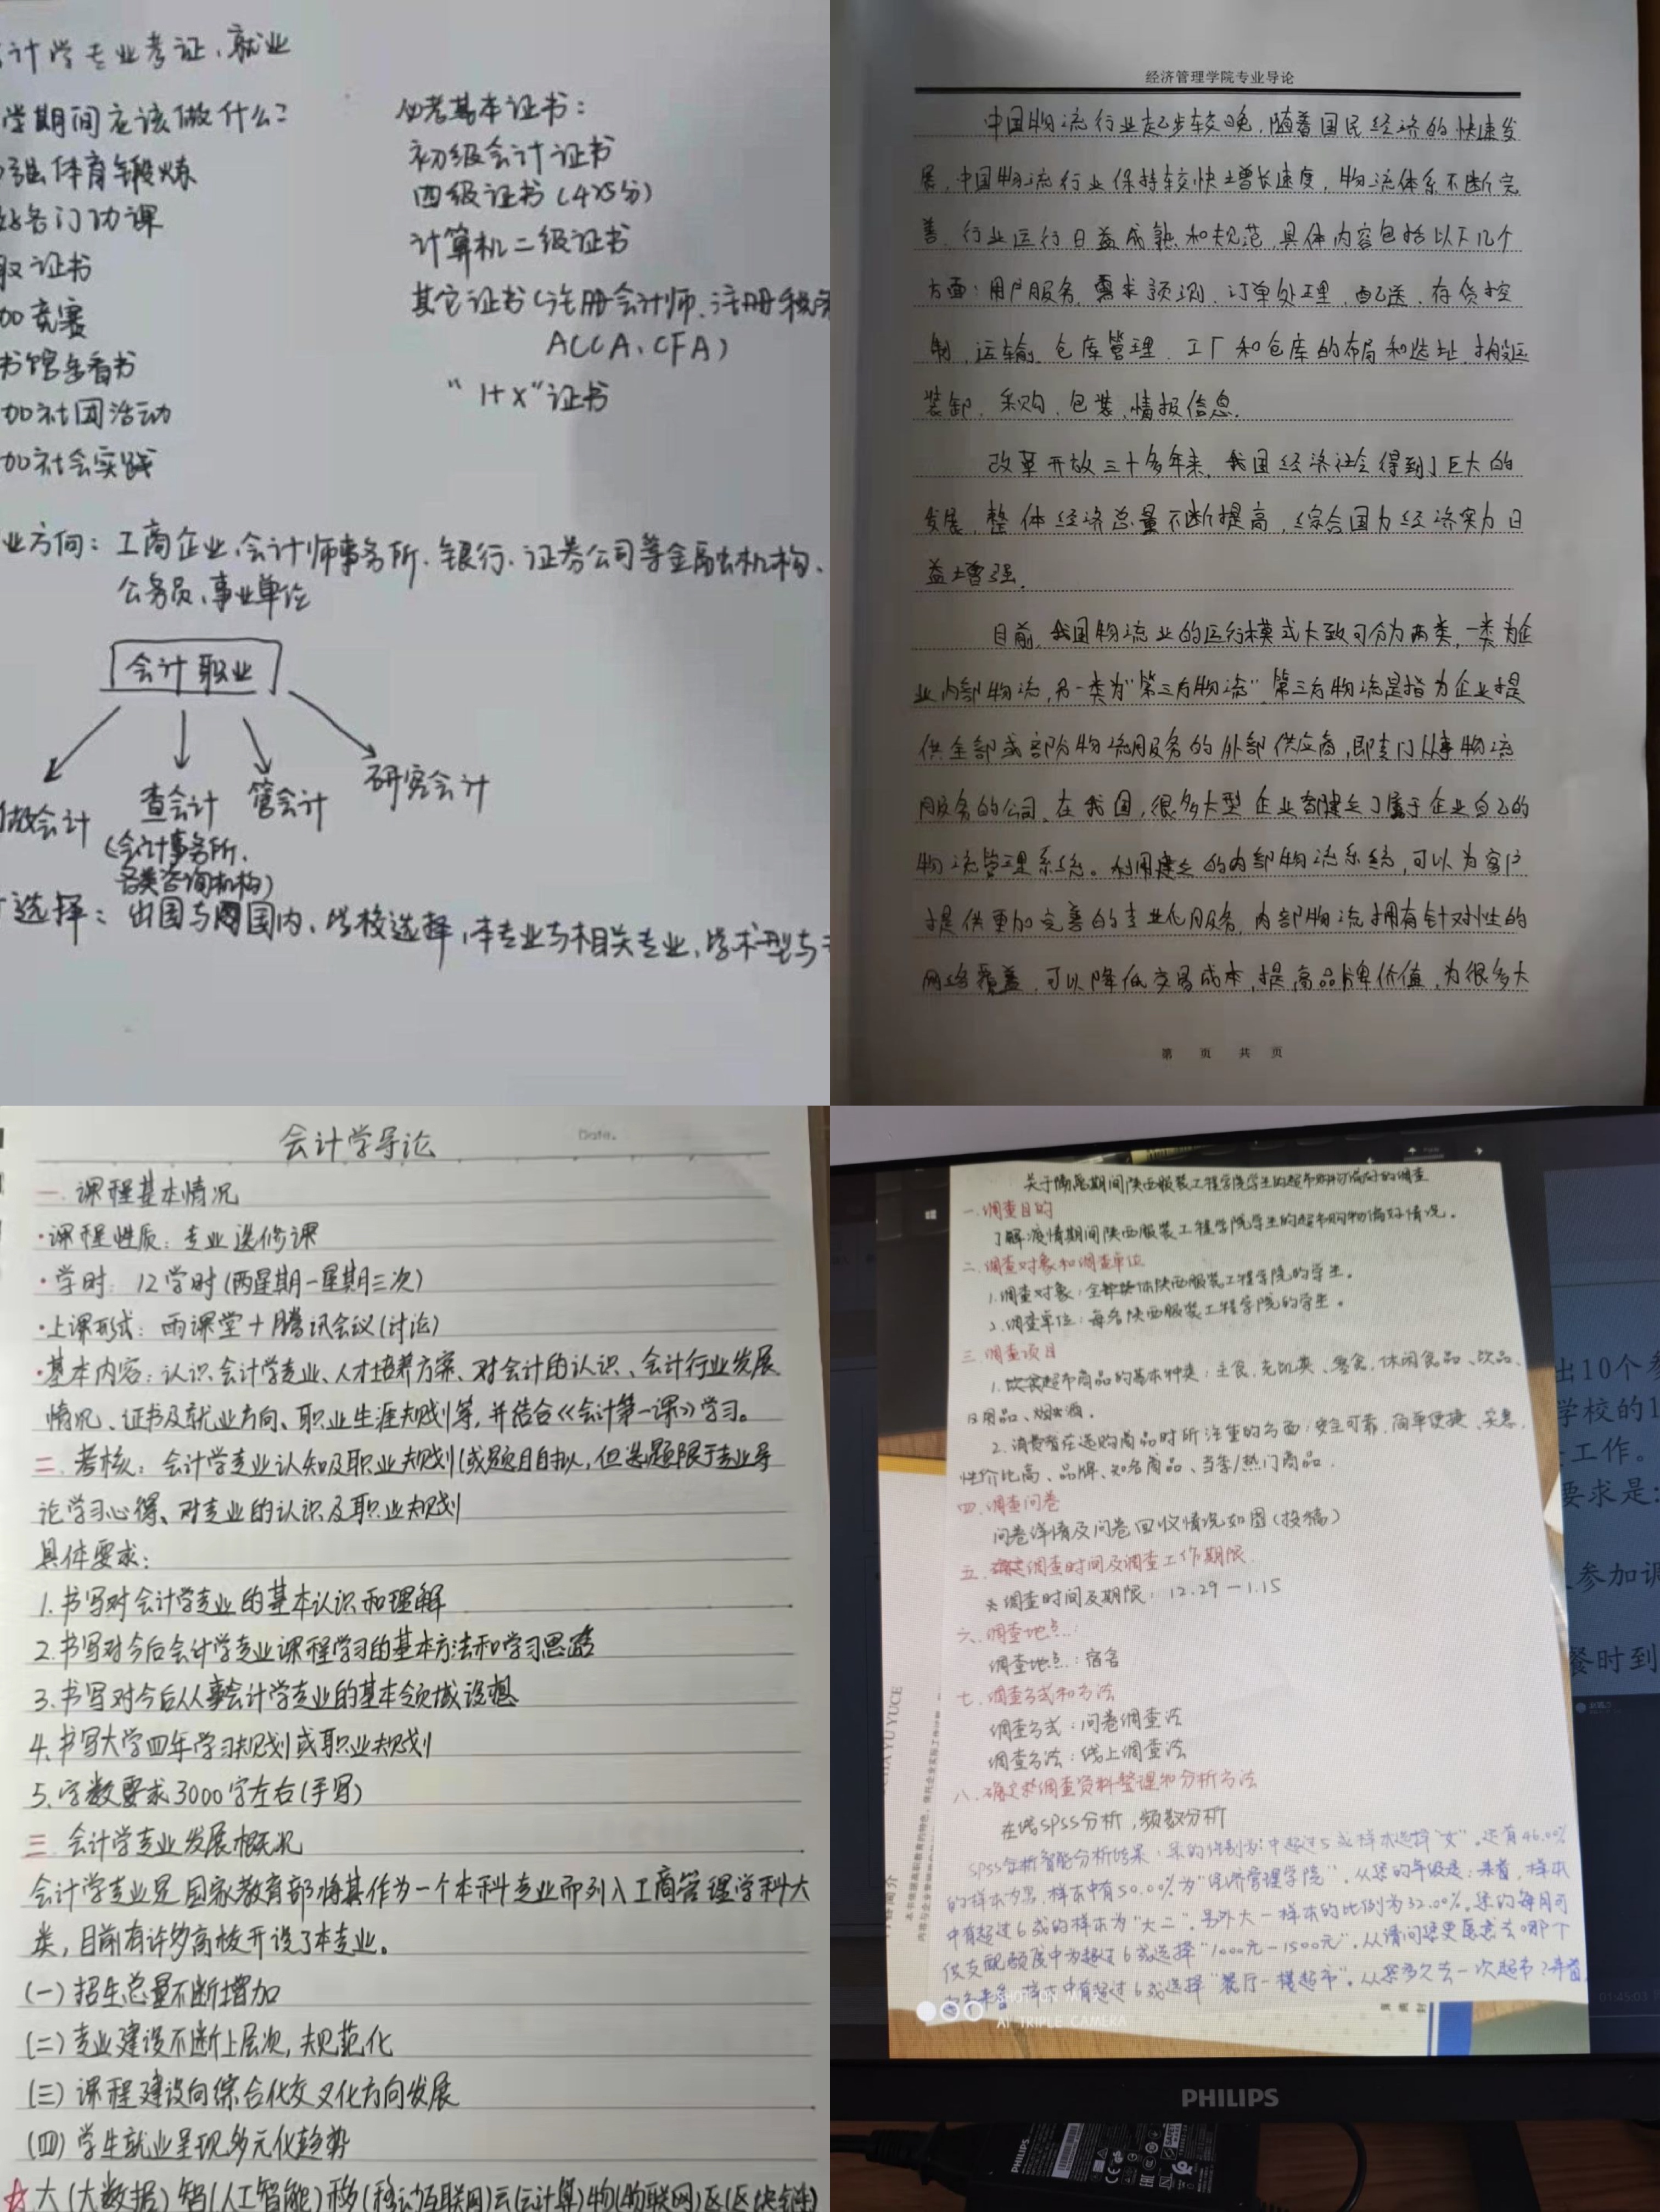 计学专业考证、就业
学期间应该做什么?
强体育锻炼
各门功课
取证书
加竞赛
书馆去看书
加社团活动
加社会实践
必考基本证书:
初级会计证书
四级证书(425分)
计算机二级证书
其它证书(注册会计师、注册税务
ACCA、CFA)
“1+X”证书
业方向: 工商企业、会计师事务所、银行、证券公司等金融机构、
公务员、事业单位
会计职业
做会计 查会计 管会计 研究会计
(会计事务所、
各类咨询机构)
选择: 出国与国内、学校选择、本专业与相关专业、学术型与
经济管理学院专业导论
中国物流行业起步较晚,随着国民经济的快速发
展,中国物流行业保持较快增长速度,物流体系不断完
善,行业运行日益成熟和规范,具体内容包括以下几个
方面:用户服务、需求预测、订单处理、配送、存货控
制、运输、仓库管理、工厂和仓库的布局和选址、搬运
装卸、采购、包装、情报信息.
改革开放三十多年来,我国经济社会得到了巨大的
发展,整体经济总量不断提高,综合国力经济实力日
益增强.
目前,我国物流业的运行模式大致可分为两类,一类为企
业内部物流,另一类为“第三方物流”.第三方物流是指为企业提
供全部或部分物流服务的外部供应商,即专门从事物流
服务的公司.在我国,很多大型企业都建立了属于企业自己的
物流管理系统。利用建立的内部物流系统,可以为客户
提供更加完善的专业化服务,内部物流拥有针对性的
网络覆盖,可以降低交易成本,提高品牌价值,为很多大
第 页 共 页
会计学导论
Date.
一. 课程基本情况
·课程性质: 专业选修课
·学时: 12学时(两星期一星期三次)
·上课形式: 雨课堂+腾讯会议(讨论)
·基本内容: 认识会计学专业、人才培养方案、对会计的认识、会计行业发展
情况、证书及就业方向、职业生涯规划等,并结合《会计第一课》学习。
二. 考核: 会计学专业认知及职业规划(或题目自拟,但选题限于专业导
论学习心得、对专业的认识及职业规划
具体要求:
1.书写对会计学专业的基本认识和理解
2.书写对今后会计学专业课程学习的基本方法和学习思路
3.书写对今后从事会计学专业的基本领域设想
4.书写大学四年学习规划或职业规划
5.字数要求3000字左右(手写)
三 会计学专业发展概况
会计学专业是国家教育部将其作为一个本科专业而列入工商管理学科大
类,目前有许多高校开设了本专业。
(一)招生总量不断增加
(二)专业建设不断上层次,规范化
(三)课程建设向综合化交叉化方向发展
(四)学生就业呈现多元化趋势
☆大(大数据)智(人工智能)移(移动互联网)云(云计算)物(物联网)区(区块链)
关于隔离期间陕西服装工程学院学生的超市购物偏好的调查
一.调查目的
了解疫情期间陕西服装工程学院学生的超市购物偏好情况。
二.调查对象和调查单位
1.调查对象:全部陕西服装工程学院的学生。
2.调查单位:每名陕西服装工程学院的学生。
三.调查项目
1.超市商品的基本种类:主食、充饥类、零食、休闲食品、饮品、
日用品、烟酒。
2.消费者在选购商品时所注重的方面:安全可靠、简单便捷、实惠、
性价比高、品牌、知名商品、当季/热门商品.
四.调查问卷
问卷详情及问卷回收情况如图(投稿)
五.调查时间及调查工作期限.
调查时间及期限: 12.29—1.15
六.调查地点:
调查地点:宿舍
七.调查方式和方法
调查方式:问卷调查法
调查方法:线上调查法
八.确定调查资料整理和分析方法
在线SPSS分析,频数分析
SPSS分析智能分析结果:您的性别为:中超过5成样本选择“女”。还有46.00%
的样本为男.样本中有50.00%为“经济管理学院”.从您的年级是:来看,样本
中有超过6成的样本为“大二”.另外大一样本的比例为32.00%.您的每月可
供支配额度中为超过6成选择“1000元-1500元”.从请问您更愿意去哪个
来看 样本中有超过6成选择“餐厅一楼超市”.从您多久去一次超市?来看
AI TRIPLE CAMERA
出10个参
学校的1
工作。
要求是:
参加调
餐时到
01:45:03
PHILIPS
PHILIPS